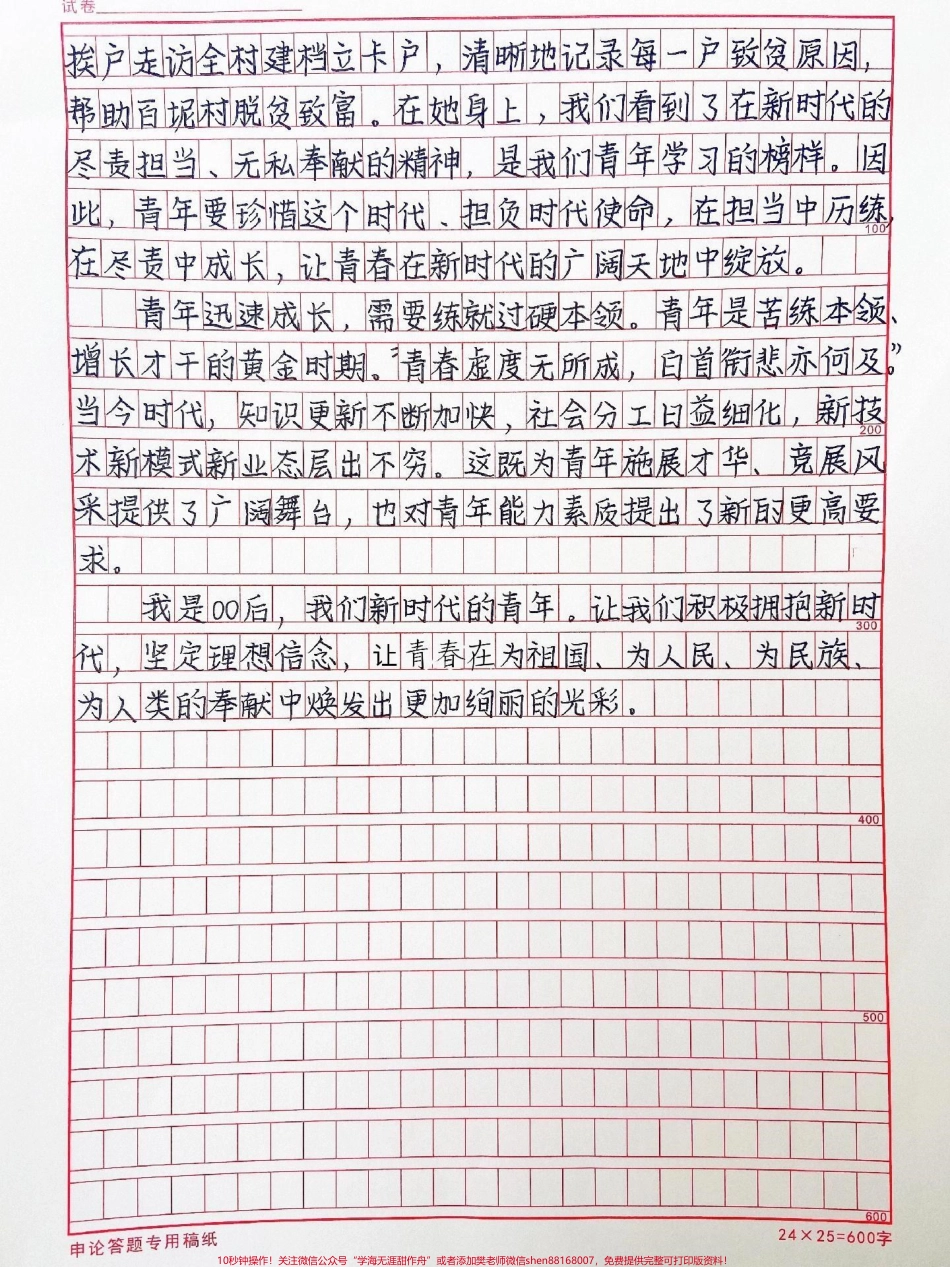 试卷
挨户走访全村建档立卡户，清晰地记录每一户致贫原因，
帮助百坭村脱贫致富。在她身上，我们看到了在新时代的
尽责担当、无私奉献的精神，是我们青年学习的榜样。因
此，青年要珍惜这个时代、担负时代使命，在担当中历练，
100
在尽责中成长，让青春在新时代的广阔天地中绽放。
青年迅速成长，需要练就过硬本领。青年是苦练本领、
增长才干的黄金时期。“青春虚度无所成，白首衔悲亦何及。”
当今时代，知识更新不断加快，社会分工日益细化，新技
200
术新模式新业态层出不穷。这既为青年施展才华、竞展风
采提供了广阔舞台，也对青年能力素质提出了新的更高要
求。
我是00后，我们新时代的青年。让我们积极拥抱新时
300
代，坚定理想信念，让青春在为祖国、为人民、为民族、
为人类的奉献中焕发出更加绚丽的光彩。
400
500
600
申论答题专用稿纸
24×25=600字
10秒钟操作！关注微信公众号“学海无涯甜作舟”或者添加樊老师微信shen88168007，免费提供完整可打印版资料！